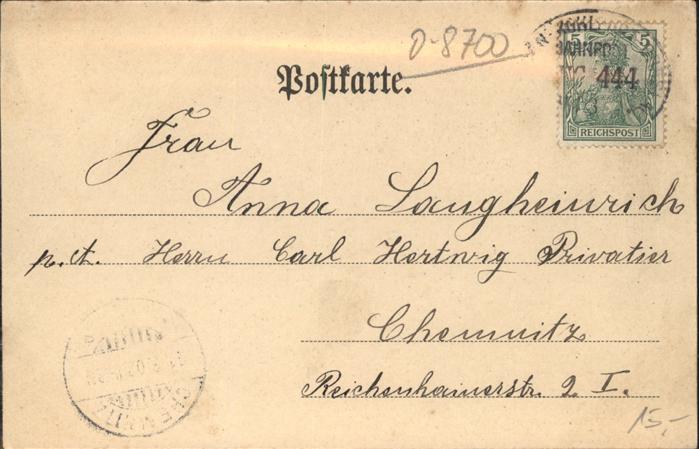 0-8700
5 5
BAHNPOST
444
REICHSPOST
Postkarte.
Frau
Anna Langheinrich
p. ct. Herrn Carl Hertwig Privatier
Chemnitz
Reichenhainerstr. 2 I.
CHEMNITZ
15,-